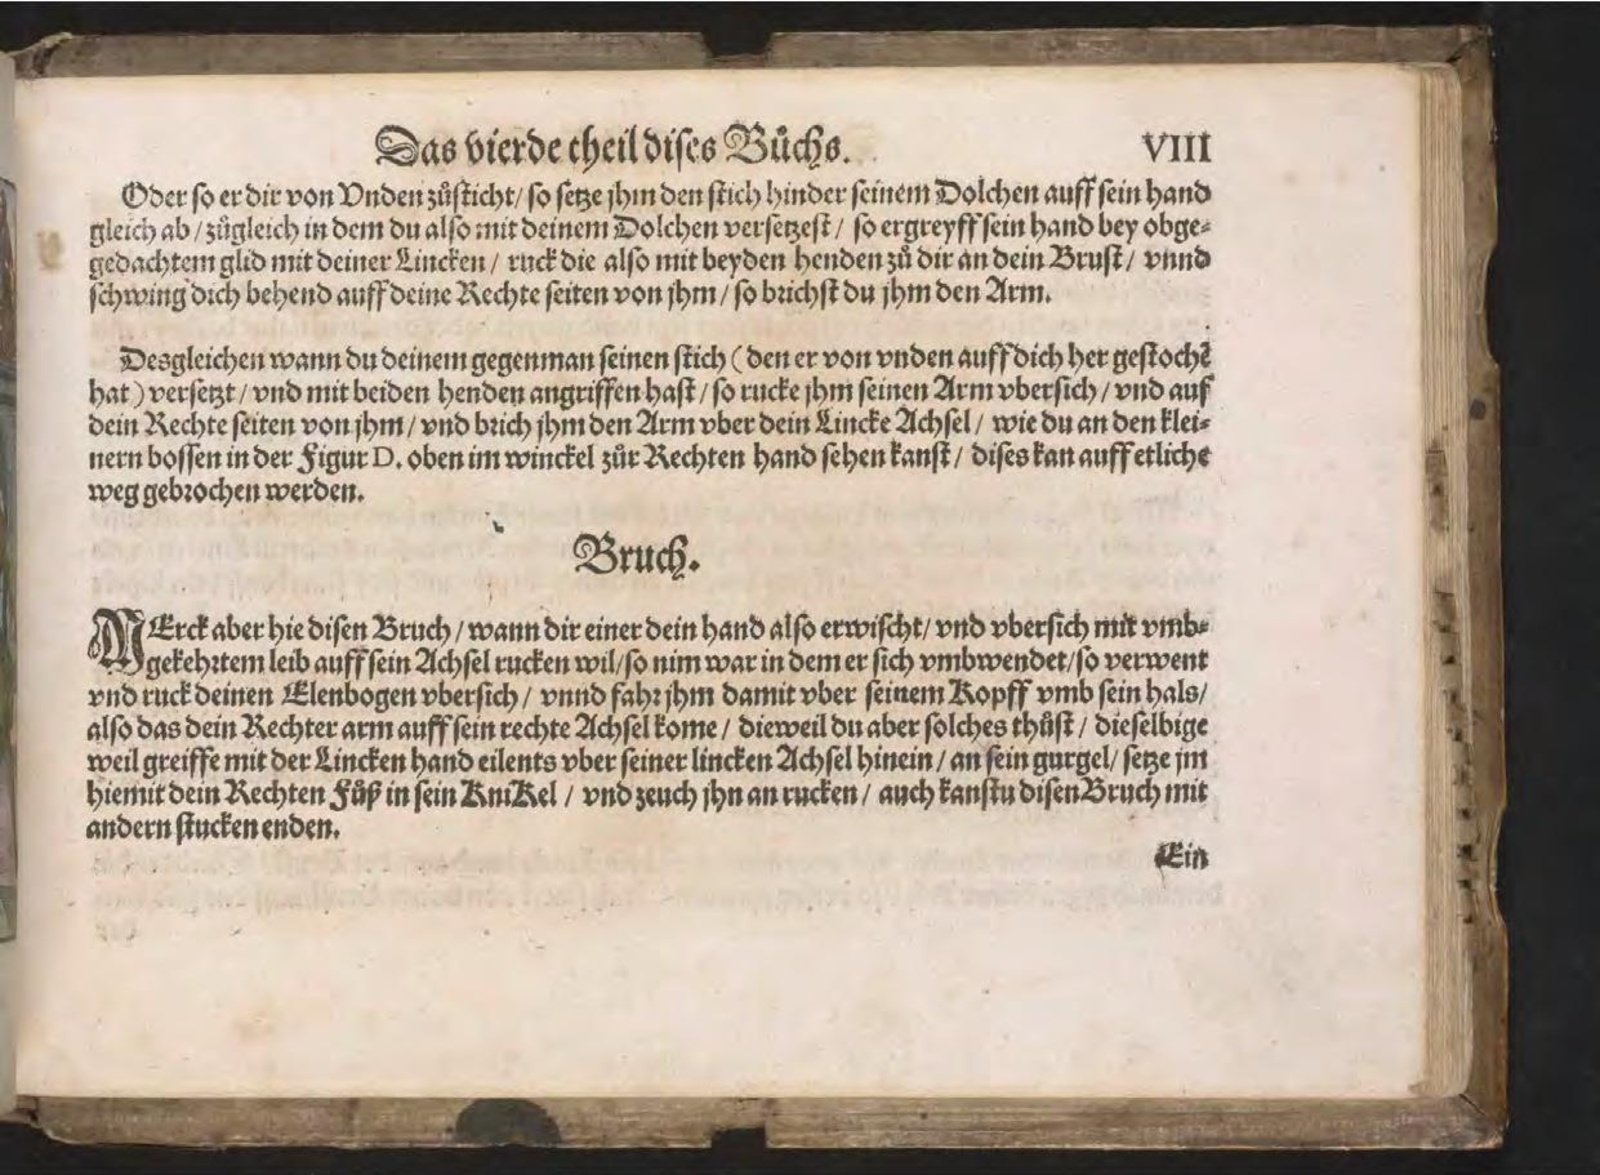 Das vierde theil dises Bůchs. VIII
Oder so er dir von Vnden zůsticht / so setze jhm den stich hinder seinem Dolchen auff sein hand
gleich ab / zůgleich in dem du also mit deinem Dolchen versetzest / so ergreyff sein hand bey obge-
gedachtem glid mit deiner Lincken / ruck die also mit beyden henden zů dir an dein Brust / vnnd
schwing dich behend auff deine Rechte seiten von jhm / so brichst du jhm den Arm.
Desgleichen wann du deinem gegenman seinen stich (den er von vnden auff dich her gestochẽ
hat) versetzt / vnd mit beiden henden angriffen hast / so rucke jhm seinen Arm vbersich / vnd auf
dein Rechte seiten von jhm / vnd brich jhm den Arm vber dein Lincke Achsel / wie du an den klei-
nern bossen in der Figur D. oben im winckel zůr Rechten hand sehen kanst / dises kan auff etliche
weg gebrochen werden.
Bruch.
MErck aber hie disen Bruch / wann dir einer dein hand also erwischt / vnd vbersich mit vmb-
gekehrtem leib auff sein Achsel rucken wil / so nim war in dem er sich vmbwendet / so verwent
vnd ruck deinen Elenbogen vbersich / vnnd fahr jhm damit vber seinem Kopff vmb sein hals /
also das dein Rechter arm auff sein rechte Achsel kome / dieweil du aber solches thůst / dieselbige
weil greiffe mit der Lincken hand eilents vber seiner lincken Achsel hinein / an sein gurgel / setze jm
hiemit dein Rechten Fůß in sein KniKel / vnd zeuch jhn an rucken / auch kanstu disen Bruch mit
andern stucken enden.
Ein